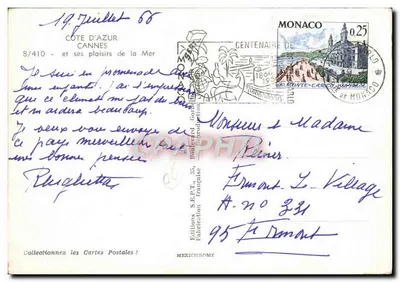 19 Juillet 66
COTE D'AZUR
CANNES
8/410 - et ses plaisirs de la Mer
Je suis en promenade avec
mes enfants. J'ai l'impression
que ce climat me fait du bien
et m'aidera beaucoup.
Je veux vous envoyer de
ce pays merveilleux
mes bonnes pensées
Collectionnez les Cartes Postales !
MEXICHROME
Editions S.E.P.T., 35, boulevard
Fabrication française
CENTENAIRE DE
MONACO
0,25
MONTE-CARLO
Monsieur et Madame
Ermont Le Village
A-no 331
95 Ermont